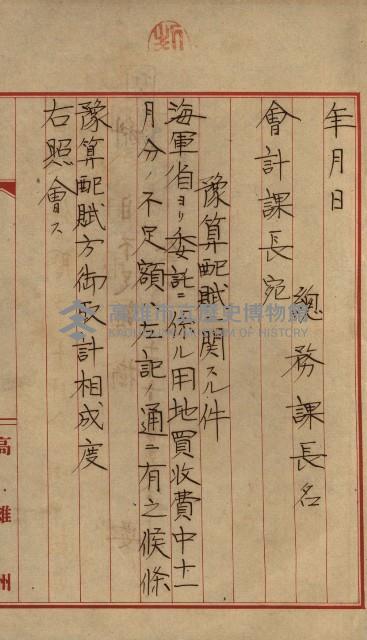 年月日
總務課長名
會計課長宛
豫算配賦關スル件
海軍省ヨリ委託ニ係ル用地買收費中十一
月分ノ不足額左記ノ通ニ有之候條
豫算配賦方御取計相成度
右照會ス
高雄州
高雄市立歷史博物館
KAOHSIUNG MUSEUM OF HISTORY